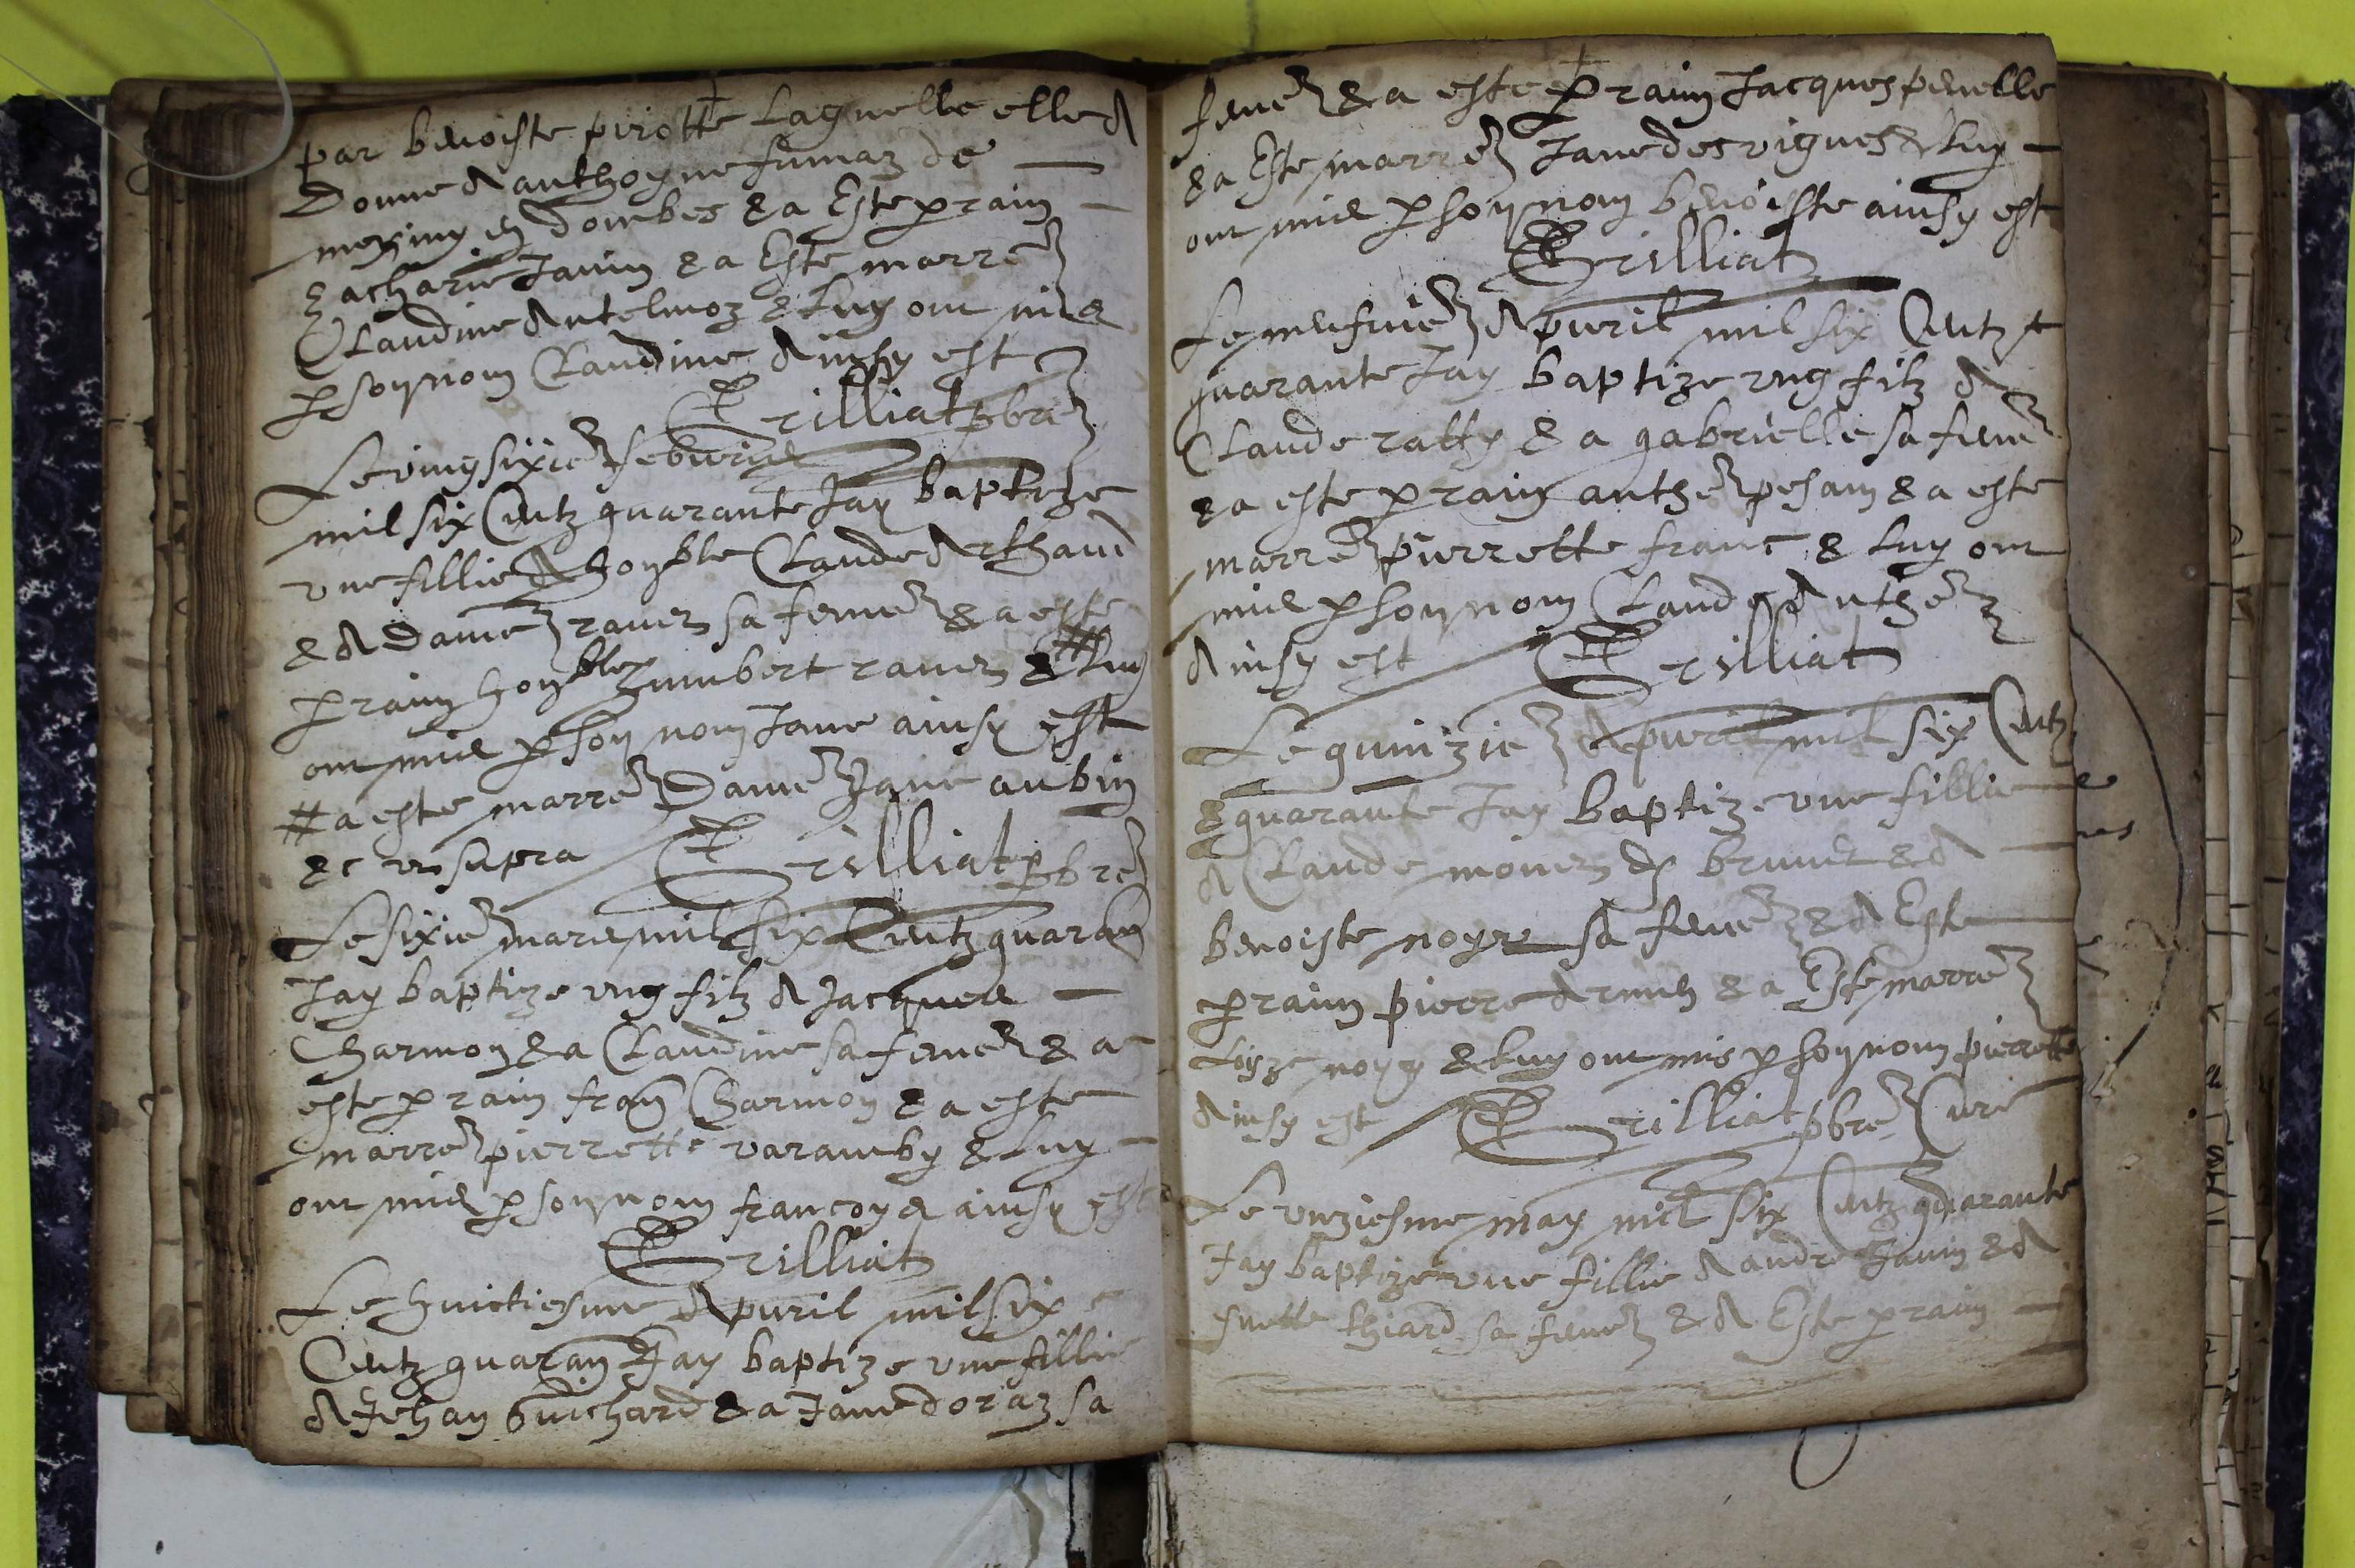 par benoiste pirotte laquelle elle a
donne a anthoyne fumaz de
meximy en dombes & a Este perain
zacharie Janin & a Este marre
Claudine Antelmoz & luy ont mis
p soyn nom Claudine Ainsy est
Trilliat pbre
Le vingsixie febvrier
mil six Centz quarante Jay baptize
une fillie A honble Claude Arthaud
& A dame ravet sa feme & a este
perain honble humbert ravet & # luy
ont mis p soyn nom Jane ainsy est
# a este marre Dame Jane aubin
&c ut supra Trilliat pbre
Le sixie mars mil six Centz quaran
Jay baptize ung filz A Jacques
Charmon & a Claudine sa feme & a
este perain fran Charmon & a este
marre pierrette varamby & luy
ont mis p soyn nom francoys ainsy est
Trilliat
Le huictiesme Apvril mil six
Centz quaran Jay baptize une fillie
A Jehan Guichard & a Jane doraz sa
feme & a este perain Jacques penelle
& a Este marre Jane desvignes & luy
ont mis p soyn nom benoiste ainsy est
Trilliat
Le neufvie Apvril mil six Centz
quarante Jay baptize ung filz A
Claude ratty & a gabrielle sa feme
& a este perain anthe pesain & a este
marre pierrette franc & luy ont
mis p soyn nom Claude Anthe
Ainsy est Trilliat
Le quinizie Apvril mil six Centz
& quarante Jay baptize une fillie
A Claude monet dt brunet & A
benoiste noyr sa feme & A Este
perain pierre & a Este marre
Loize noyr & luy ont mis p soyn nom pierrette
Ainsy est Trilliat pbre Cure
Le unziesme may mil six Centz quarante
Jay baptize une fillie A andre Janin & A
thiard sa feme & A Este perain